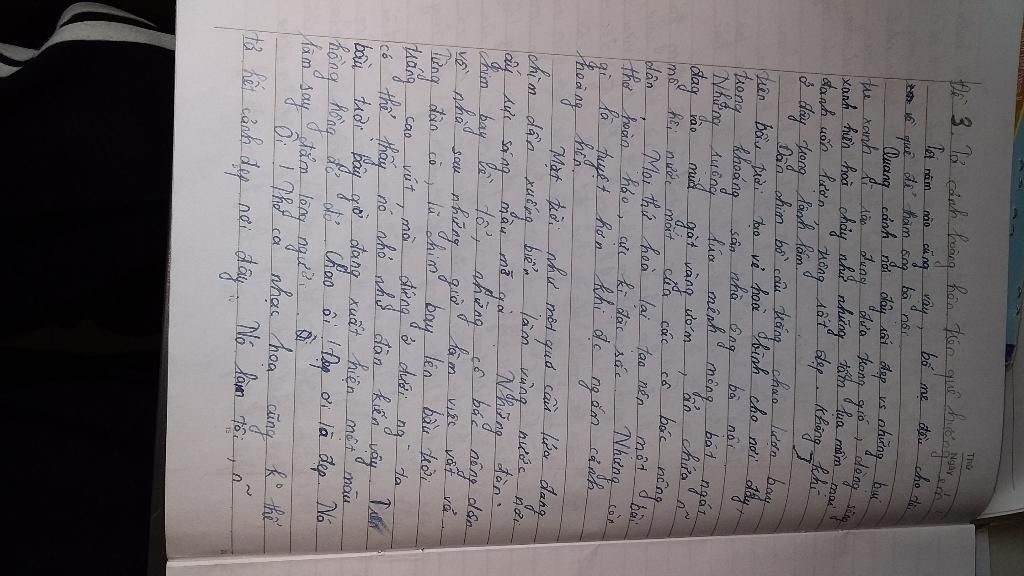 Thứ
Ngày
Đề 3: Tả cảnh hoàng hôn trên quê hương em
Tới năm nào cũng vậy, bố mẹ đều cho tôi
về quê để thăm ông bà nội.
Quang cảnh nơi đây rất đẹp vs những bụi
tre xanh rì rào đung đưa trong gió, dòng sông
xanh hiền hoà chảy như những tấm lụa mềm mại
đanh uốn lượn, trông rất đẹp. Không khí
ở đây trong lành lắm
Đàn chim bồ câu trắng chao lượn bay
trên bầu trời tạo vẻ hoà bình cho nơi đây,
trong khoang sân nhà ông bà nội.
Những ruộng lúa mênh mông bát ngát
đang vào mùa gặt vàng ươm, ẩn chứa n~
mồ hôi nước mắt của các cô bác nông
dân. Mọi thứ hoà lại tạo nên một bài
thơ hoàn hảo, cực kì đặc sắc. Nhưng còn
gì là tuyệt hơn khi đc ngắm cảnh
hoàng hôn
Mặt trời như một quả cầu lửa đang
chìm dần xuống biển làm vùng nước nơi
ấy rực sáng màu mỡ gà. Những đàn
chim bay về tổ, những cô bác nông dân
về nhà sau những giờ làm việc vất vả.
Từng đàn cò, lũ chim bay lên bầu trời
trong cao vút, mà đứng ở dưới ng ta
có thể thấy nó nhỏ như đàn kiến vậy.
bầu trời bây giờ đang xuất hiện một màu
hồng hồng đỏ đỏ. Chao ôi! Đẹp ơi là đẹp. Nó
làm say đắm lòng người.
Ôi! Thơ ca nhạc hoạ cũng ko thể
tả hết cảnh đẹp nơi đây. Nó làm tôi, n~